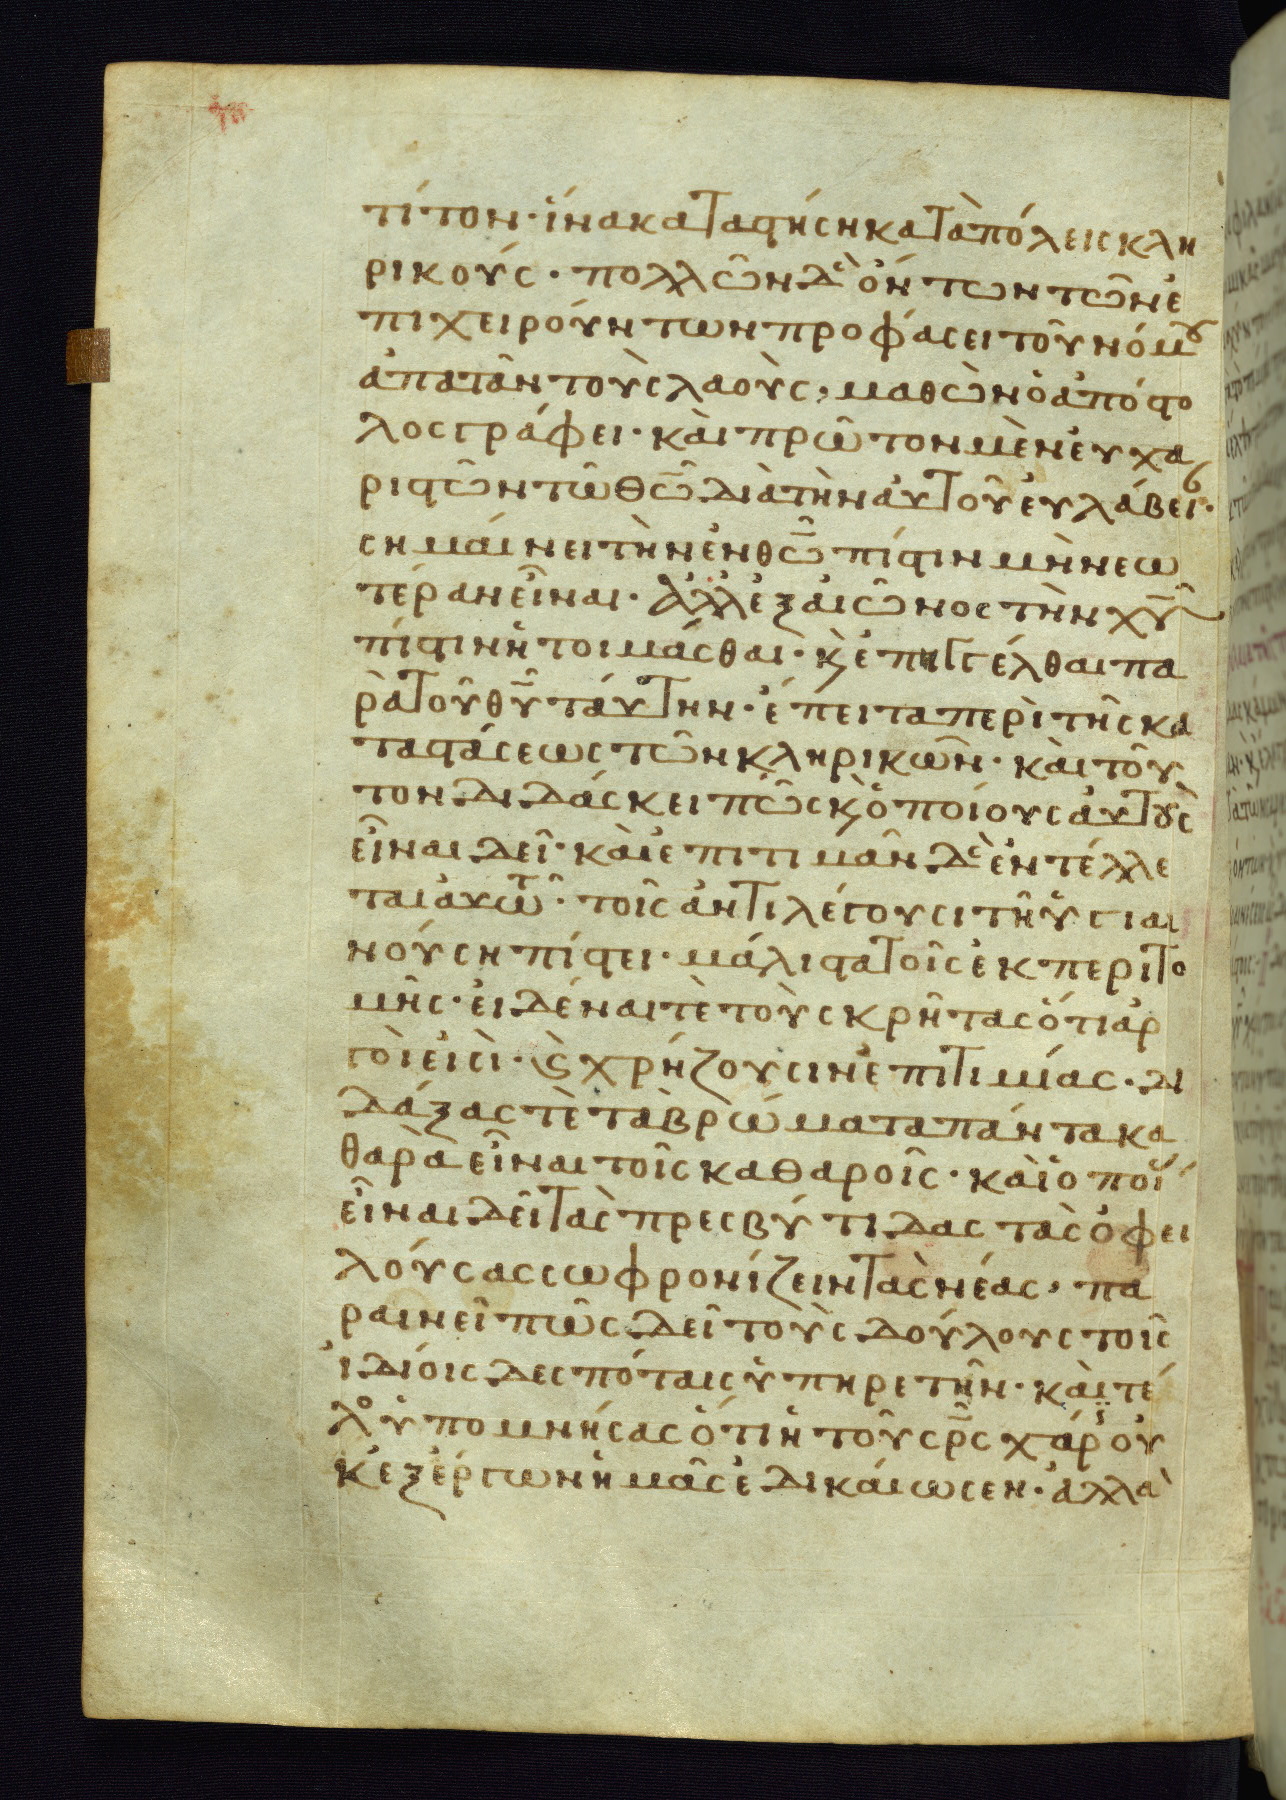 τίτον· ἵνα καταστήση κατὰ πόλεις κλη
ρικούς· πολλῶν δὲ ὄντων τῶν ἐ
πιχειρούντων προφάσει τοῦ νόμου
ἀπατᾶν τοὺς λαοὺς, μαθὼν ὁ ἀπόστο
λος γράφει· καὶ πρῶτον μὲν ἐυχα
ριστῶν τῶ θῶ διὰ τὴν ἀυτοῦ ἐυλάβει·
σημάινει τὴν ἐν θῶ πίστιν μὴ νεω
τέραν εἶναι· ἀλλ' ἐξ αἰῶνος τὴν χῦ
πίστιν ἡτοιμάσθαι· κὲ ἐπηγγέλθαι πα
ρὰ τοῦ θῦ τάυτην· ἔπειτα περὶ τῆς κα
ταστάσεως τῶν κληρικῶν· καὶ τοῦ
τον διδάσκει πῶς κὲ ὁποίους ἀυτοὺς
εἶναι δεῖ· καὶ ἐπιτιμᾶν δὲ ἐντέλλε
ται ἀυτῶ· τοῖς ἀντιλέγουσι τῆ ὑγιαι
νούση πίστει· μάλιστα τοῖς ἐκ περιτο
μῆς· εἰδέναι τὲ τοὺς κρῆτας ὅτι ἀρ
γοὶ εἰσὶ· κὲ χρήζουσιν ἐπιτιμίας· δι
δάξας τὲ τὰ βρώματα πάντα κα
θαρὰ εἶναι τοῖς καθαροῖς· καὶ ὁποί
εἶναι δεῖ τὰς πρεσβύτιδας τὰς ὀφει
λούσας σωφρονίζειν τὰς νέας, πα
ραινεῖ πῶς δεῖ τοὺς δούλους τοῖς
ἰδίοις δεσπόταις ὑπηρετῆν· καὶ τέ
λο ὑπομνήσας ὅτι ἡ τοῦ σρς χάρϊς οὐ
κ ἐξ ἔργων ἡμᾶς ἐδικάιωσεν· ἀλλὰ